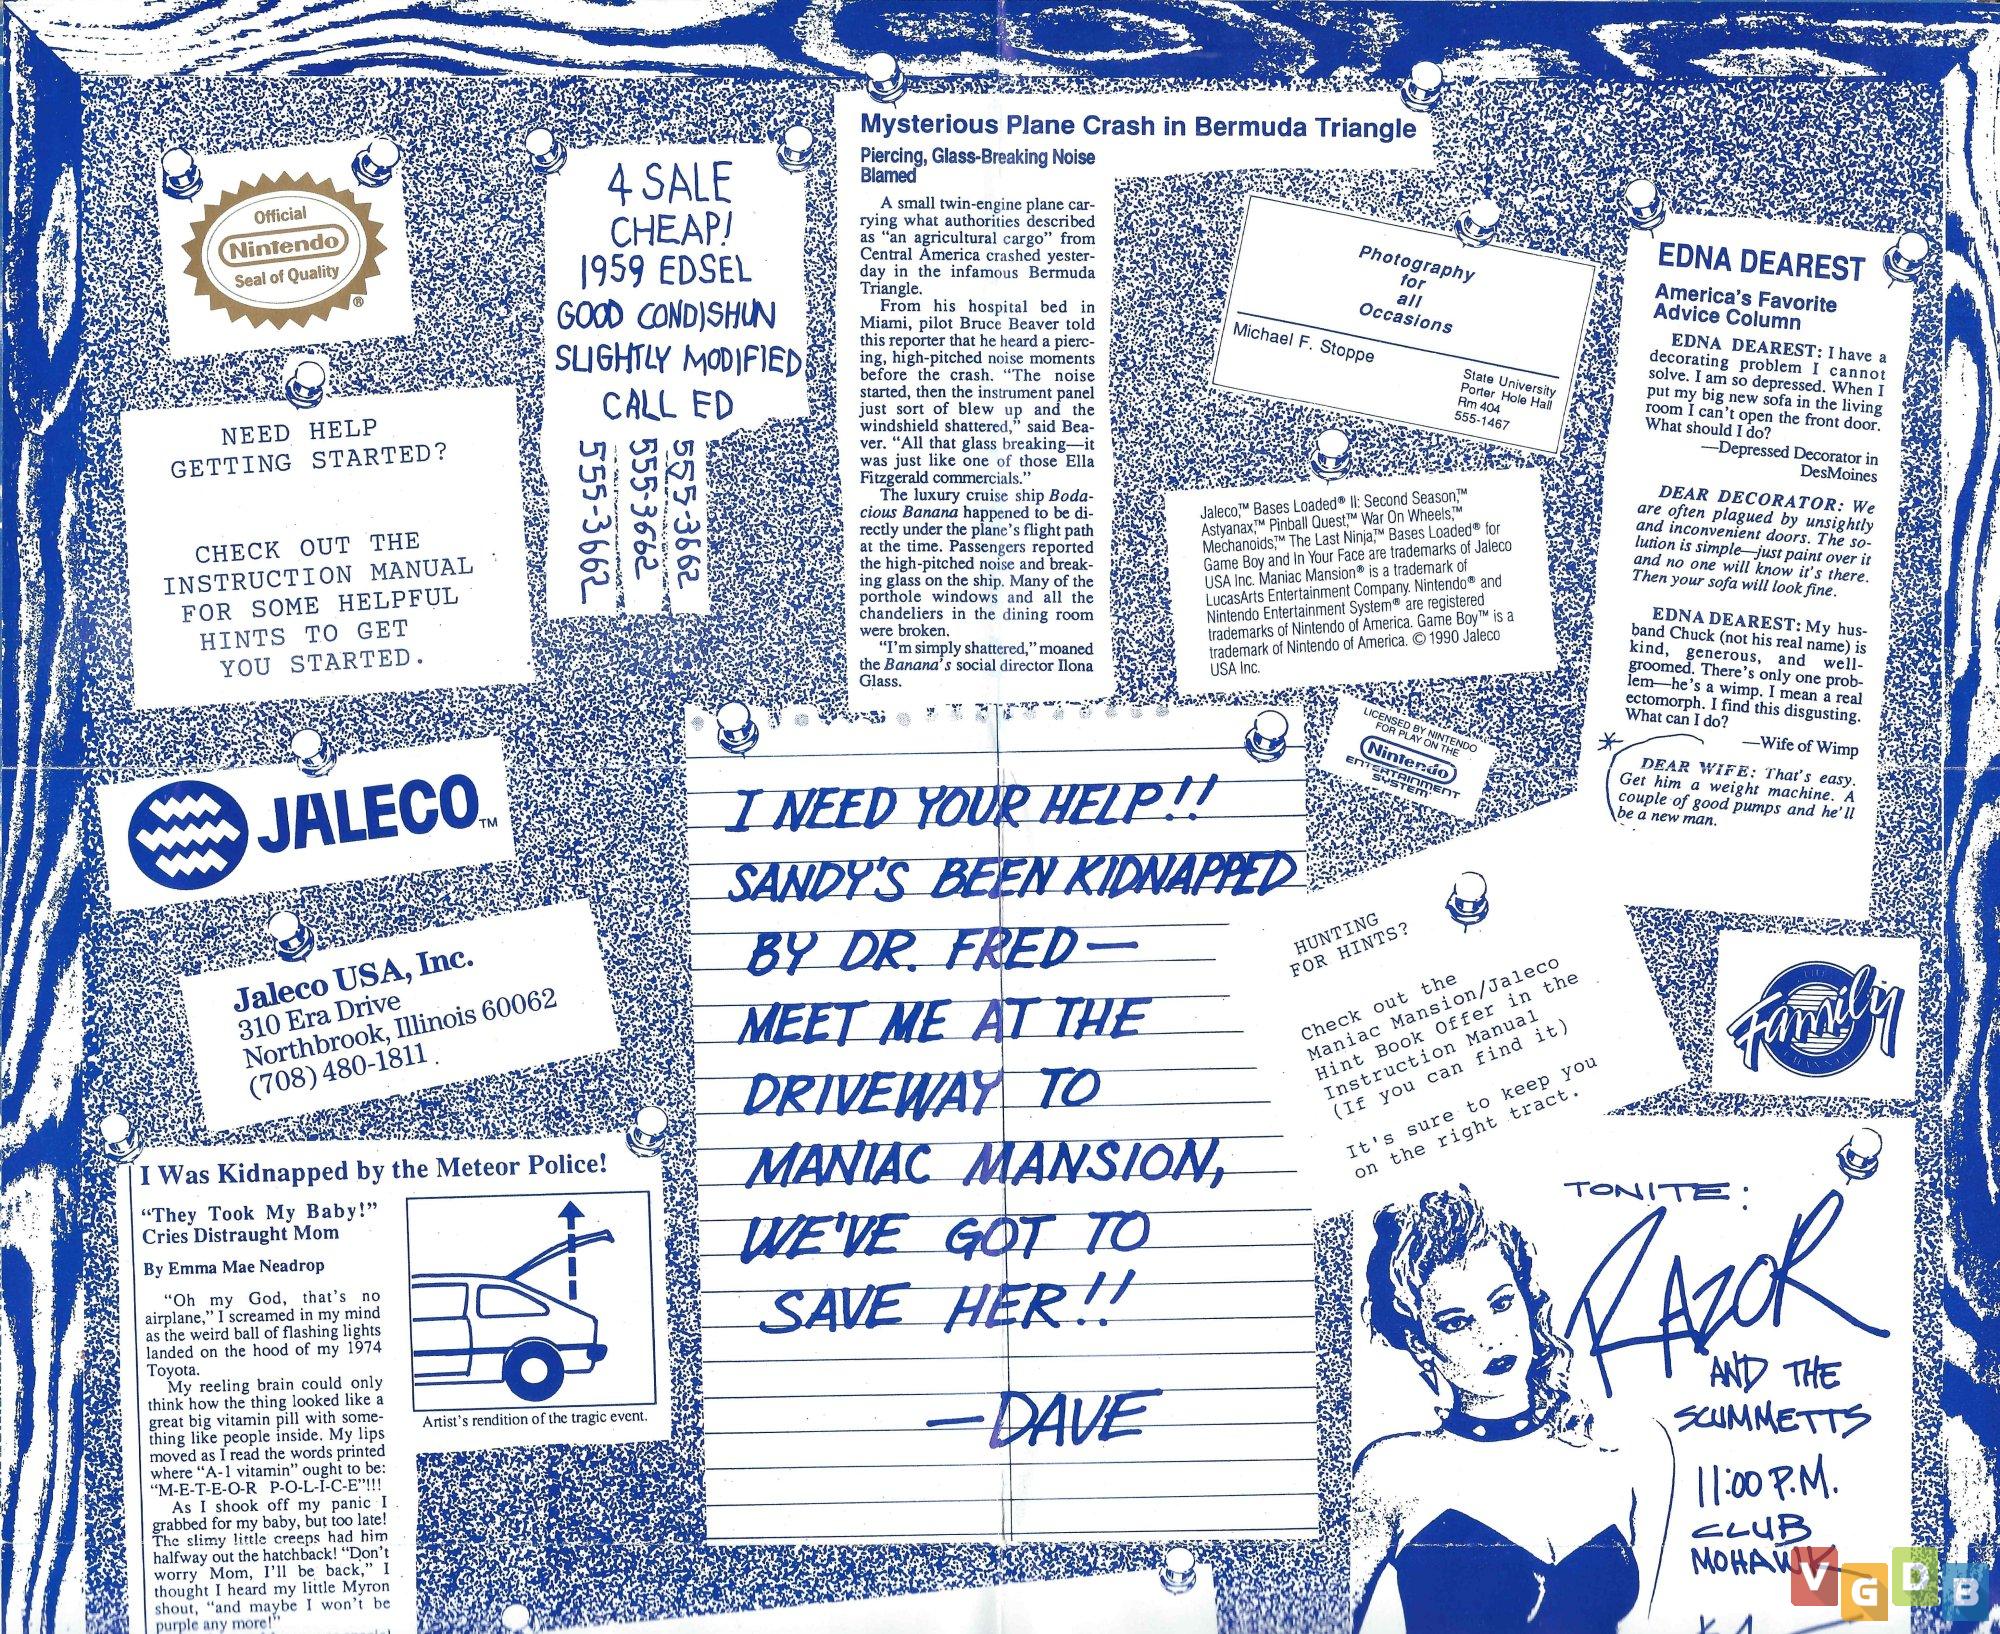 Official
Nintendo
Seal of Quality
®
NEED HELP
GETTING STARTED?
CHECK OUT THE
INSTRUCTION MANUAL
FOR SOME HELPFUL
HINTS TO GET
YOU STARTED.
JALECO™
Jaleco USA, Inc.
310 Era Drive
Northbrook, Illinois 60062
(708) 480-1811
I Was Kidnapped by the Meteor Police!
"They Took My Baby!"
Cries Distraught Mom
By Emma Mae Neadrop
"Oh my God, that's no
airplane," I screamed in my mind
as the weird ball of flashing lights
landed on the hood of my 1974
Toyota.
My reeling brain could only
think how the thing looked like a
great big vitamin pill with some-
thing like people inside. My lips
moved as I read the words printed
where "A-1 vitamin" ought to be:
"M-E-T-E-O-R P-O-L-I-C-E"!!!
As I shook off my panic I
grabbed for my baby, but too late!
The slimy little creeps had him
halfway out the hatchback! "Don't
worry Mom, I'll be back," I
thought I heard my little Myron
shout, "and maybe I won't be
purple any more!"
Artist's rendition of the tragic event.
4 SALE
CHEAP!
1959 EDSEL
GOOD CONDISHUN
SLIGHTLY MODIFIED
CALL ED
555-3662
555-3662
555-3662
Mysterious Plane Crash in Bermuda Triangle
Piercing, Glass-Breaking Noise
Blamed
A small twin-engine plane car-
rying what authorities described
as "an agricultural cargo" from
Central America crashed yester-
day in the infamous Bermuda
Triangle.
From his hospital bed in
Miami, pilot Bruce Beaver told
this reporter that he heard a pierc-
ing, high-pitched noise moments
before the crash. "The noise
started, then the instrument panel
just sort of blew up and the
windshield shattered," said Bea-
ver. "All that glass breaking—it
was just like one of those Ella
Fitzgerald commercials."
The luxury cruise ship Boda-
cious Banana happened to be di-
rectly under the plane's flight path
at the time. Passengers reported
the high-pitched noise and break-
ing glass on the ship. Many of the
porthole windows and all the
chandeliers in the dining room
were broken.
"I'm simply shattered," moaned
the Banana's social director Ilona
Glass.
Photography
for
all
Occasions
Michael F. Stoppe
State University
Porter Hole Hall
Rm 404
555-1467
Jaleco,™ Bases Loaded® II: Second Season,™
Astyanax,™ Pinball Quest,™ War On Wheels,™
Mechanoids,™ The Last Ninja,™ Bases Loaded® for
Game Boy and In Your Face are trademarks of Jaleco
USA Inc. Maniac Mansion® is a trademark of
LucasArts Entertainment Company. Nintendo® and
Nintendo Entertainment System® are registered
trademarks of Nintendo of America. Game Boy™ is a
trademark of Nintendo of America. © 1990 Jaleco
USA Inc.
LICENSED BY NINTENDO
FOR PLAY ON THE
Nintendo
ENTERTAINMENT
SYSTEM
EDNA DEAREST
America's Favorite
Advice Column
EDNA DEAREST: I have a
decorating problem I cannot
solve. I am so depressed. When I
put my big new sofa in the living
room I can't open the front door.
What should I do?
—Depressed Decorator in
DesMoines
DEAR DECORATOR: We
are often plagued by unsightly
and inconvenient doors. The so-
lution is simple—just paint over it
and no one will know it's there.
Then your sofa will look fine.
EDNA DEAREST: My hus-
band Chuck (not his real name) is
kind, generous, and well-
groomed. There's only one prob-
lem—he's a wimp. I mean a real
ectomorph. I find this disgusting.
What can I do?
—Wife of Wimp
*
DEAR WIFE: That's easy.
Get him a weight machine. A
couple of good pumps and he'll
be a new man.
I NEED YOUR HELP!!
SANDY'S BEEN KIDNAPPED
BY DR. FRED—
MEET ME AT THE
DRIVEWAY TO
MANIAC MANSION,
WE'VE GOT TO
SAVE HER!!
—DAVE
HUNTING
FOR HINTS?
Check out the
Maniac Mansion/Jaleco
Hint Book Offer in the
Instruction Manual
(If you can find it)
It's sure to keep you
on the right tract.
THE
Family
CHANNEL
TONITE:
RAZOR
AND THE
SCUMMETTS
11:00 P.M.
CLUB
MOHAWK
VGDB